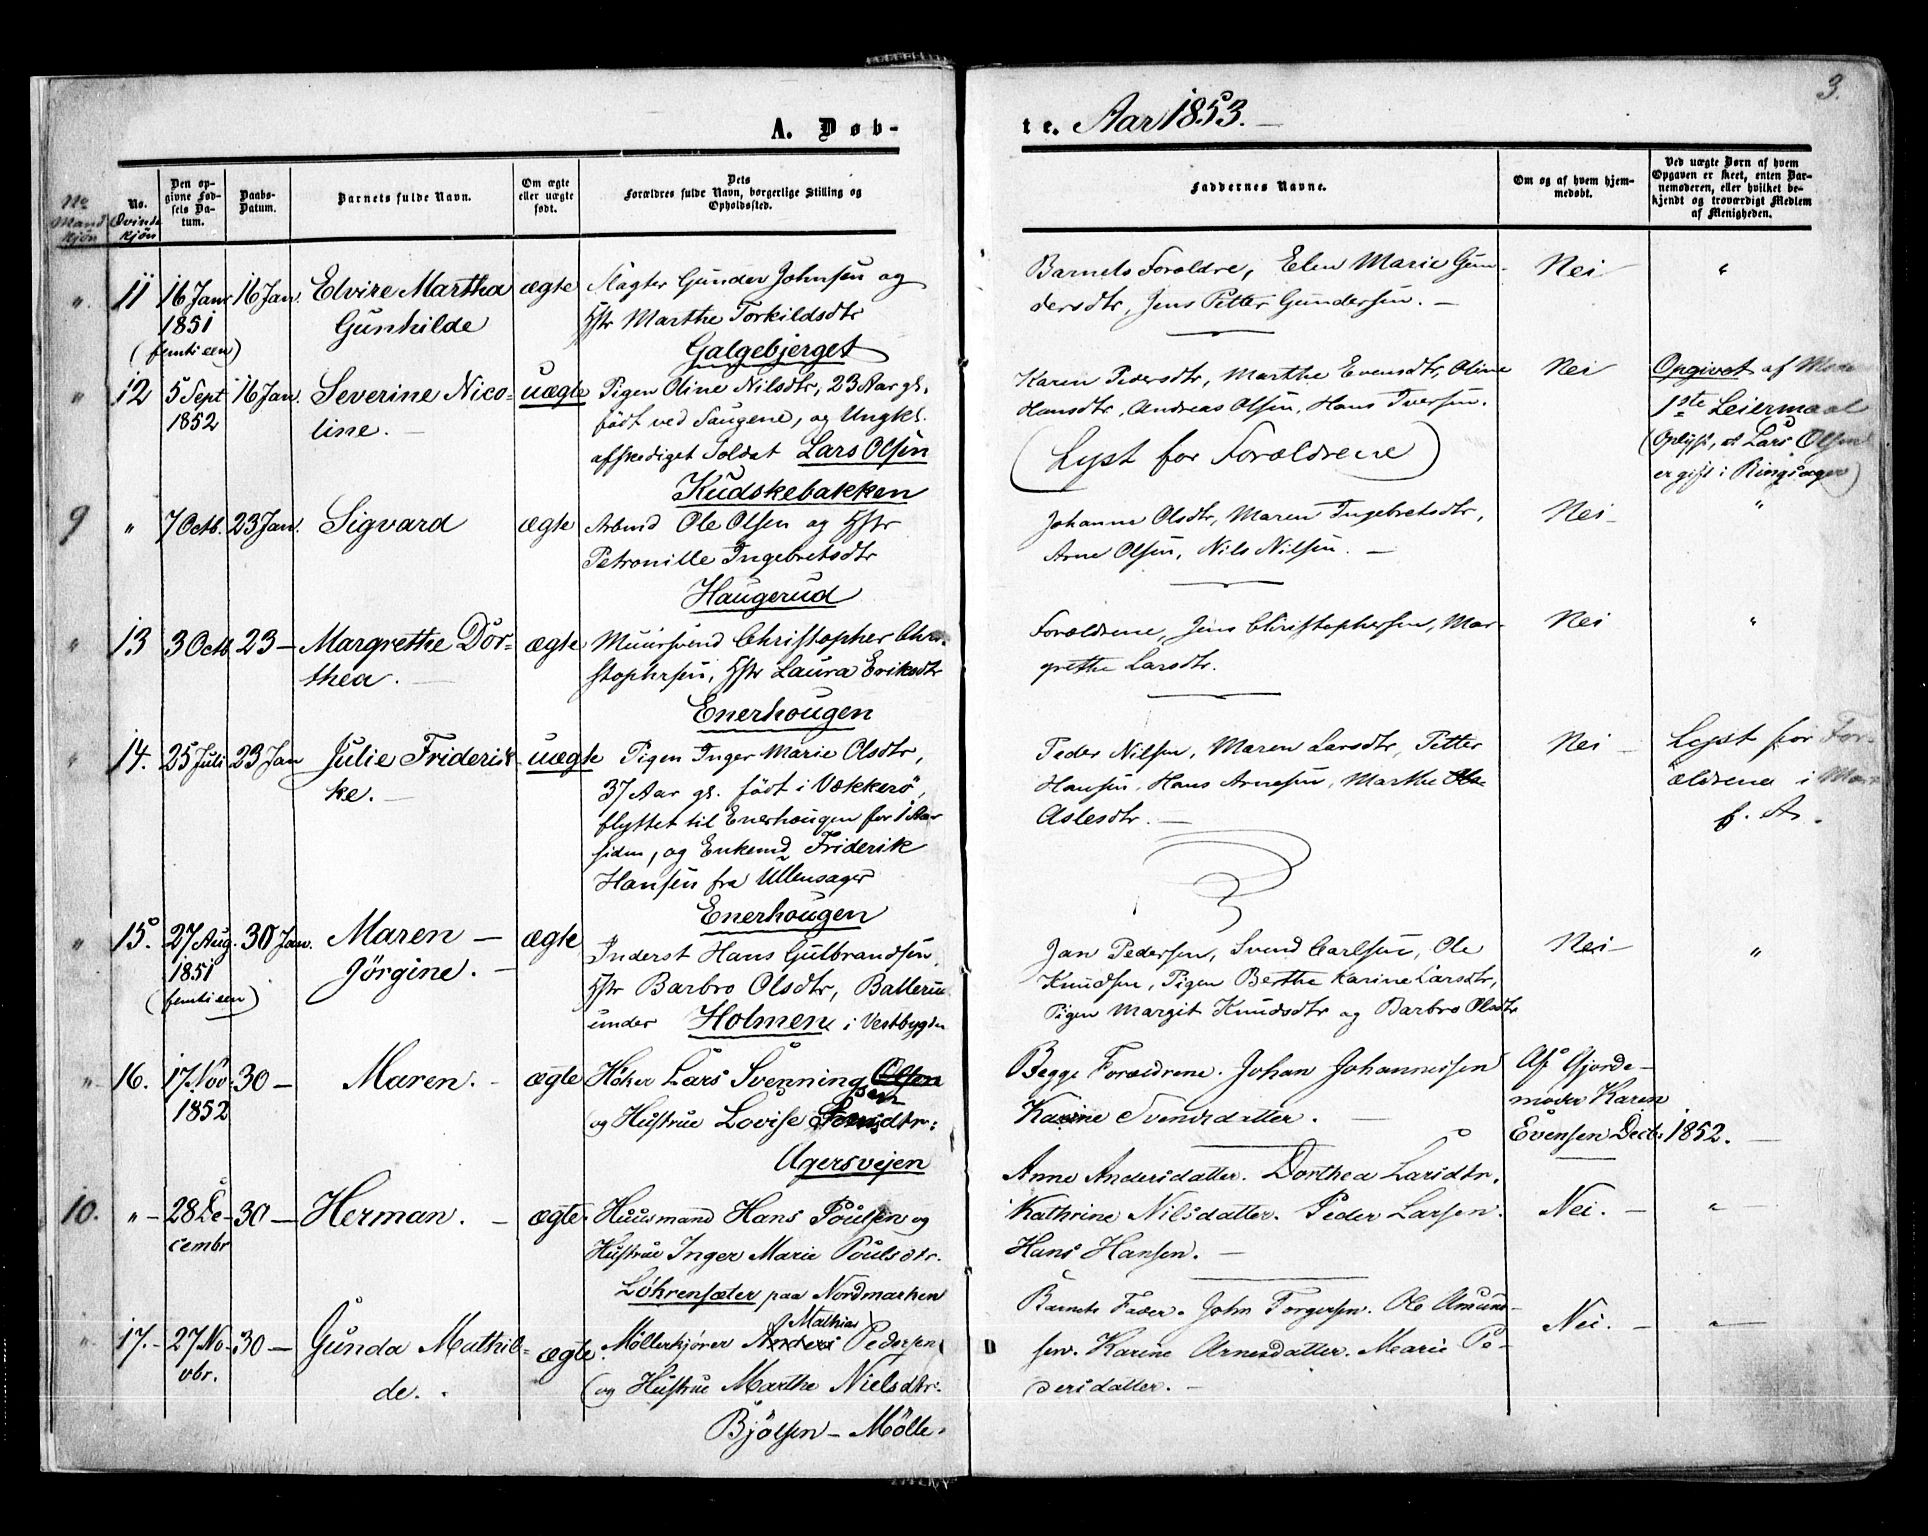 3.
A. Døb-
te. Aar 1853. —
No Mandkjön
No. Qvindekjön
Den opgivne Fødsels Datum.
Daabs-Datum.
Barnets fulde Navn.
Om ægte eller uægte født.
Dets Forældres fulde Navn, borgerlige Stilling og Opholdssted.
Faddernes Navne.
Om og af hvem hjemmedøbt.
Ved uægte Børn af hvem Opgaven er skeet, enten Barnemoderen, eller hvilket bekjendt og troværdigt Medlem af Menigheden.
" 11 16 Janr 1851 (femti een) 16 Jan. Elvire Martha Gunhilde ægte
Slagter Gunder Johnsen og
Hstr Marthe Torkildsdtr
Galgebjerget
Barnets Forældre, Elen Marie Gun-
dersdtr, Jens Petter Gundersen. —
Nei "
" 12 5 Sept 1852 16 Jan. Severine Nico-
line. — uægte
Pigen Oline Nilsdtr, 23 Aar gl.
födt ved Saugene, og Ungkl.
afskediget Soldat Lars Olsen
Kudskebakken
Karen Pedersdtr, Marthe Evensdtr, Oline
Hansdtr, Andreas Olsen, Hans Iversen.
(Lyst for Forældrene)
Nei
Opgivet af
1ste Leiermaal
(Oplyst, at Lars Olsen
er gift i Ringsager)
9 " 7 Octb. 23 Jan. Sigvard ægte
Arbmd Ole Olsen og Hstr
Petronille Ingebretsdtr
Haugerud
Johanne Olsdtr, Maren Ingebretsdtr,
Arne Olsen, Nils Nilsen. —
Nei "
" 13 3 Octb 23 — Margrethe Dor-
thea. — ægte
Muursvend Christopher Chri-
stophersen, Hstr Laura Eriksdtr
Enerhougen
Forældrene, Jens Christophersen, Mar-
grethe Larsdtr.
Nei "
" 14. 25 Juli 23 Jan Julie Frideri-
ke. — uægte
Pigen Inger Marie Olsdtr,
37 Aar gl. födt i Vækkerö,
flyttet til Enerhougen for 1 Aar
siden, og Enkemd Friderik
Hansen fra Ullensager
Enerhougen
Peder Nilsen, Maren Larsdtr, Petter
Hansen, Hans Arnesen, Marthe
Aslesdtr. —
Nei —
Lyst for For-
ældrene i
f. A.
" 15. 27 Aug. 1851 (femti een) 30 Jan. Maren —
Jörgine. — ægte
Inderst Hans Gulbrandsen,
Hstr Barbro Olsdtr, Ballerud
under Holmen i Vestbygden
Jan Pedersen, Svend Carlsen, Ole
Knudsen, Pigen Berthe Karine Larsdtr,
Pigen Margit Knudsdtr og Barbro Olsdtr
Nei — "
" 16. 17. Nov. 1852 30 — Maren. — ægte
Höker Lars Svenning Olsen
og Hustrue Lovise dtr.
Agersvejen
Begge Forældrene. Johan Johannissen
Karine Svendsdatter. —
Af Gjorde-
moder Karen
Evensen Decb. 1852. —
10. " — 28 De-
cembr 30 — Herman. — ægte.
Huusmand Hans Poulsen og
Hustrue Inger Marie Poulsdtr.
Löhrensæter paa Nordmarken
Anne Andersdatter. Dorthea Larsdtr.
Kathrine Nilsdatter. Peder Larsen.
Hans Hansen. —
Nei. — " —
" 17. — 27. No-
vbr. 30 — Gunda Mathil-
de. ægte.
Möllerkjører Anders Mathias Pedersen
(og Hustrue Marthe Nielsdtr.
Bjölsen — Mölle.
Barnets Fader. John Torgersen. Ole Amund-
sen. Karine Arnesdatter. Marie Pe-
dersdatter. —
Nei. — " —